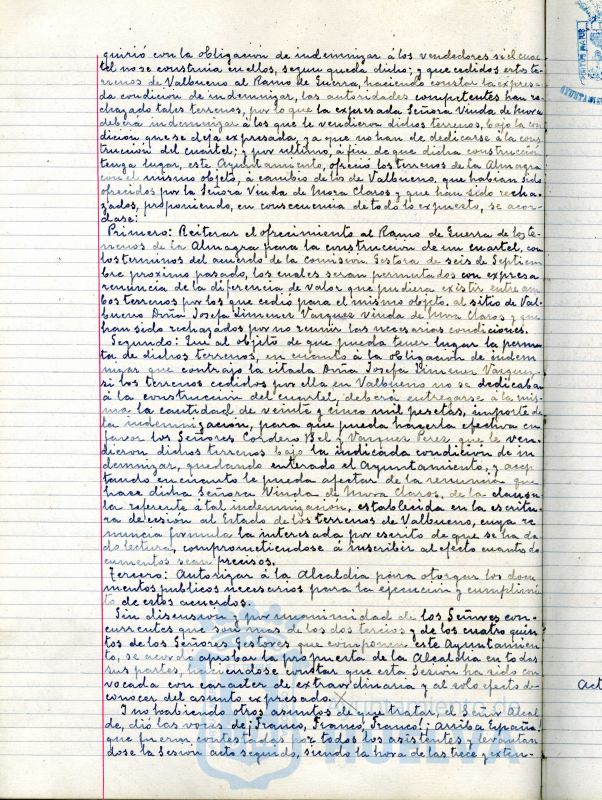 quirió con la obligacion de indemnizar á los vendedores si el cuar-
tel no se construia en ellos, segun queda dicho; y que cedidos estos te-
rrenos de Valbueno al Ramo de Guerra, haciendo constar la expresa-
da condicion de indemnizar, las autoridades competentes han re-
chazado tales terrenos, por lo que la expresada Señora Viuda de Mora
deberá indemnizar á los que le vendieron dichos terrenos, bajo la con-
dición que se deja expresada, ya que no han de dedicarse á la cons-
truccion del cuartel; y por ultimo, á fin de que dicha construccion
tenga lugar, este Ayuntamiento, ofreció los terrenos de la Almagra
con el mismo objeto, á cambio de los de Valbueno, que habian sido
ofrecidos por la Señora Viuda de Mora Claros y que han sido recha-
zados, proponiendo, en consecuencia de todo lo expuesto, se acor-
dase:
Primero: Reiterar el ofrecimiento al Ramo de Guerra de los te-
rrenos de la Almagra para la construccion de un cuartel, con
los terminos del acuerdo de la Comision Gestora de seis de Septiem-
bre proximo pasado, los cuales seran permutados con expresa
renuncia de la diferencia de valor que pudiera existir entre am-
bos terrenos por los que cedió para el mismo objeto, al sitio de Val-
bueno Doña Josefa Jimenez Vazquez viuda de Mora Claros y que
han sido rechazados por no reunir las necesarias condiciones.
Segundo: Que al objeto de que pueda tener lugar la permu-
ta de dichos terrenos, en cuanto á la obligacion de indem
nizar que contrajo la citada Doña Josefa Jimenez Vazquez
si los terrenos cedidos por ella en Valbueno no se dedicaban
á la construccion del cuartel, deberá entregarse á la mis-
ma la cantidad de veinte y cinco mil pesetas, importe de
la indemnización, para que pueda hacerla efectiva en
favor los Señores Cordero Bel y Vazquez Perez que le ven-
dieron dichos terrenos bajo la indicada condicion de in
demnizar, quedando enterado el Ayuntamiento, y acep
tando en cuanto le pueda afectar de la renuncia que
hace dicha Señora Viuda de Mora Claros, de la clausu
la referente á tal indemnización, establecida en la escritu-
ra de cesion al Estado de los terrenos de Valbueno, cuya re
nuncia formula la interesada por escrito de que se ha da
do lectura, comprometiendose á inscribir al efecto cuantos do
cumentos sean precisos.
Tercero: Autorizar á la Alcaldia para otorgar los docu-
mentos publicos necesarios para la ejecucion y cumplimien
to de estos acuerdos.
Sin discusion y por unanimidad de los Señores con-
currentes que son mas de los dos tercios y de los cuatro quin
tos de los Señores Gestores que componen este Ayuntamien
to, se acordó aprobar la propuesta de la Alcaldia en todas
sus partes, haciendose constar que esta Sesion ha sido con
vocada con caracter de extraordinaria y al solo efecto de
conocer del asunto expresado.
Y no habiendo otros asuntos de que tratar, el Señor Alcal
de, dió las voces de ¡Franco, Franco, Franco! ¡Arriba España!
que fueron contestadas por todos los asistentes y levantan
dose la Sesion acto seguido, siendo la hora de las trece y exten-
act